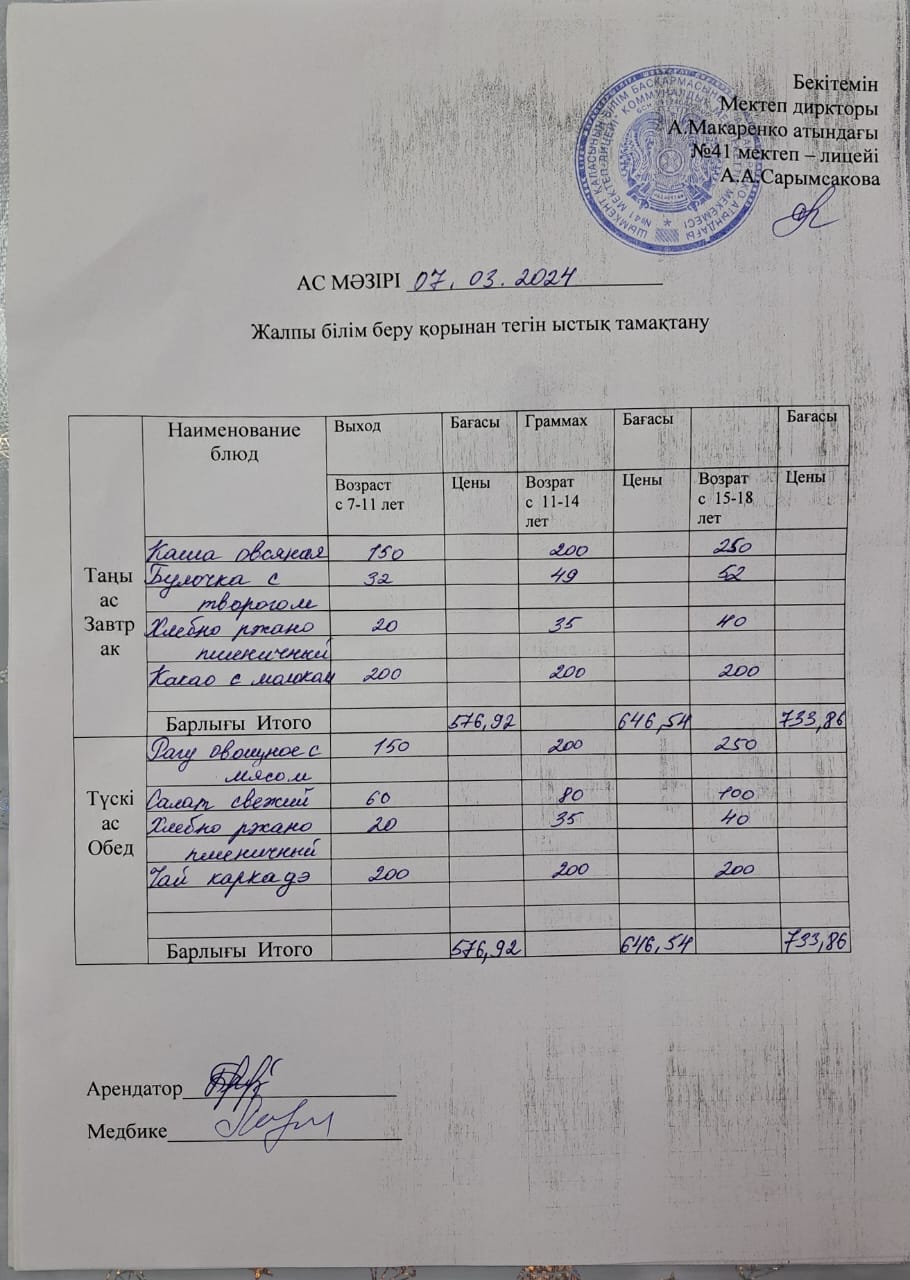 Бекітемін
Мектеп диркторы
А.Макаренко атындағы
№41 мектеп – лицейі
А.А.Сарымсакова
АС МӘЗІРІ 07.03.2024
Жалпы білім беру қорынан тегін ыстық тамақтану
Наименование блюд Выход Бағасы Граммах Бағасы Бағасы
Возраст с 7-11 лет Цены Возрат с 11-14 лет Цены Возрат с 15-18 лет Цены
Таңы ас Завтрак
Каша овсяная 150 200 250
Булочка с 32 49 52
творогом
Хлебно ржано 20 35 40
пшеничный
Какао с молокам 200 200 200
Барлығы Итого 576,92 646,54 733,86
Түскі ас Обед
Рагу овощное с 150 200 250
мясом
Салат свежий 60 80 100
Хлебно ржано 20 35 40
пшеничный
Чай каркадэ 200 200 200
Барлығы Итого 576,92 646,54 733,86
Арендатор
Медбике